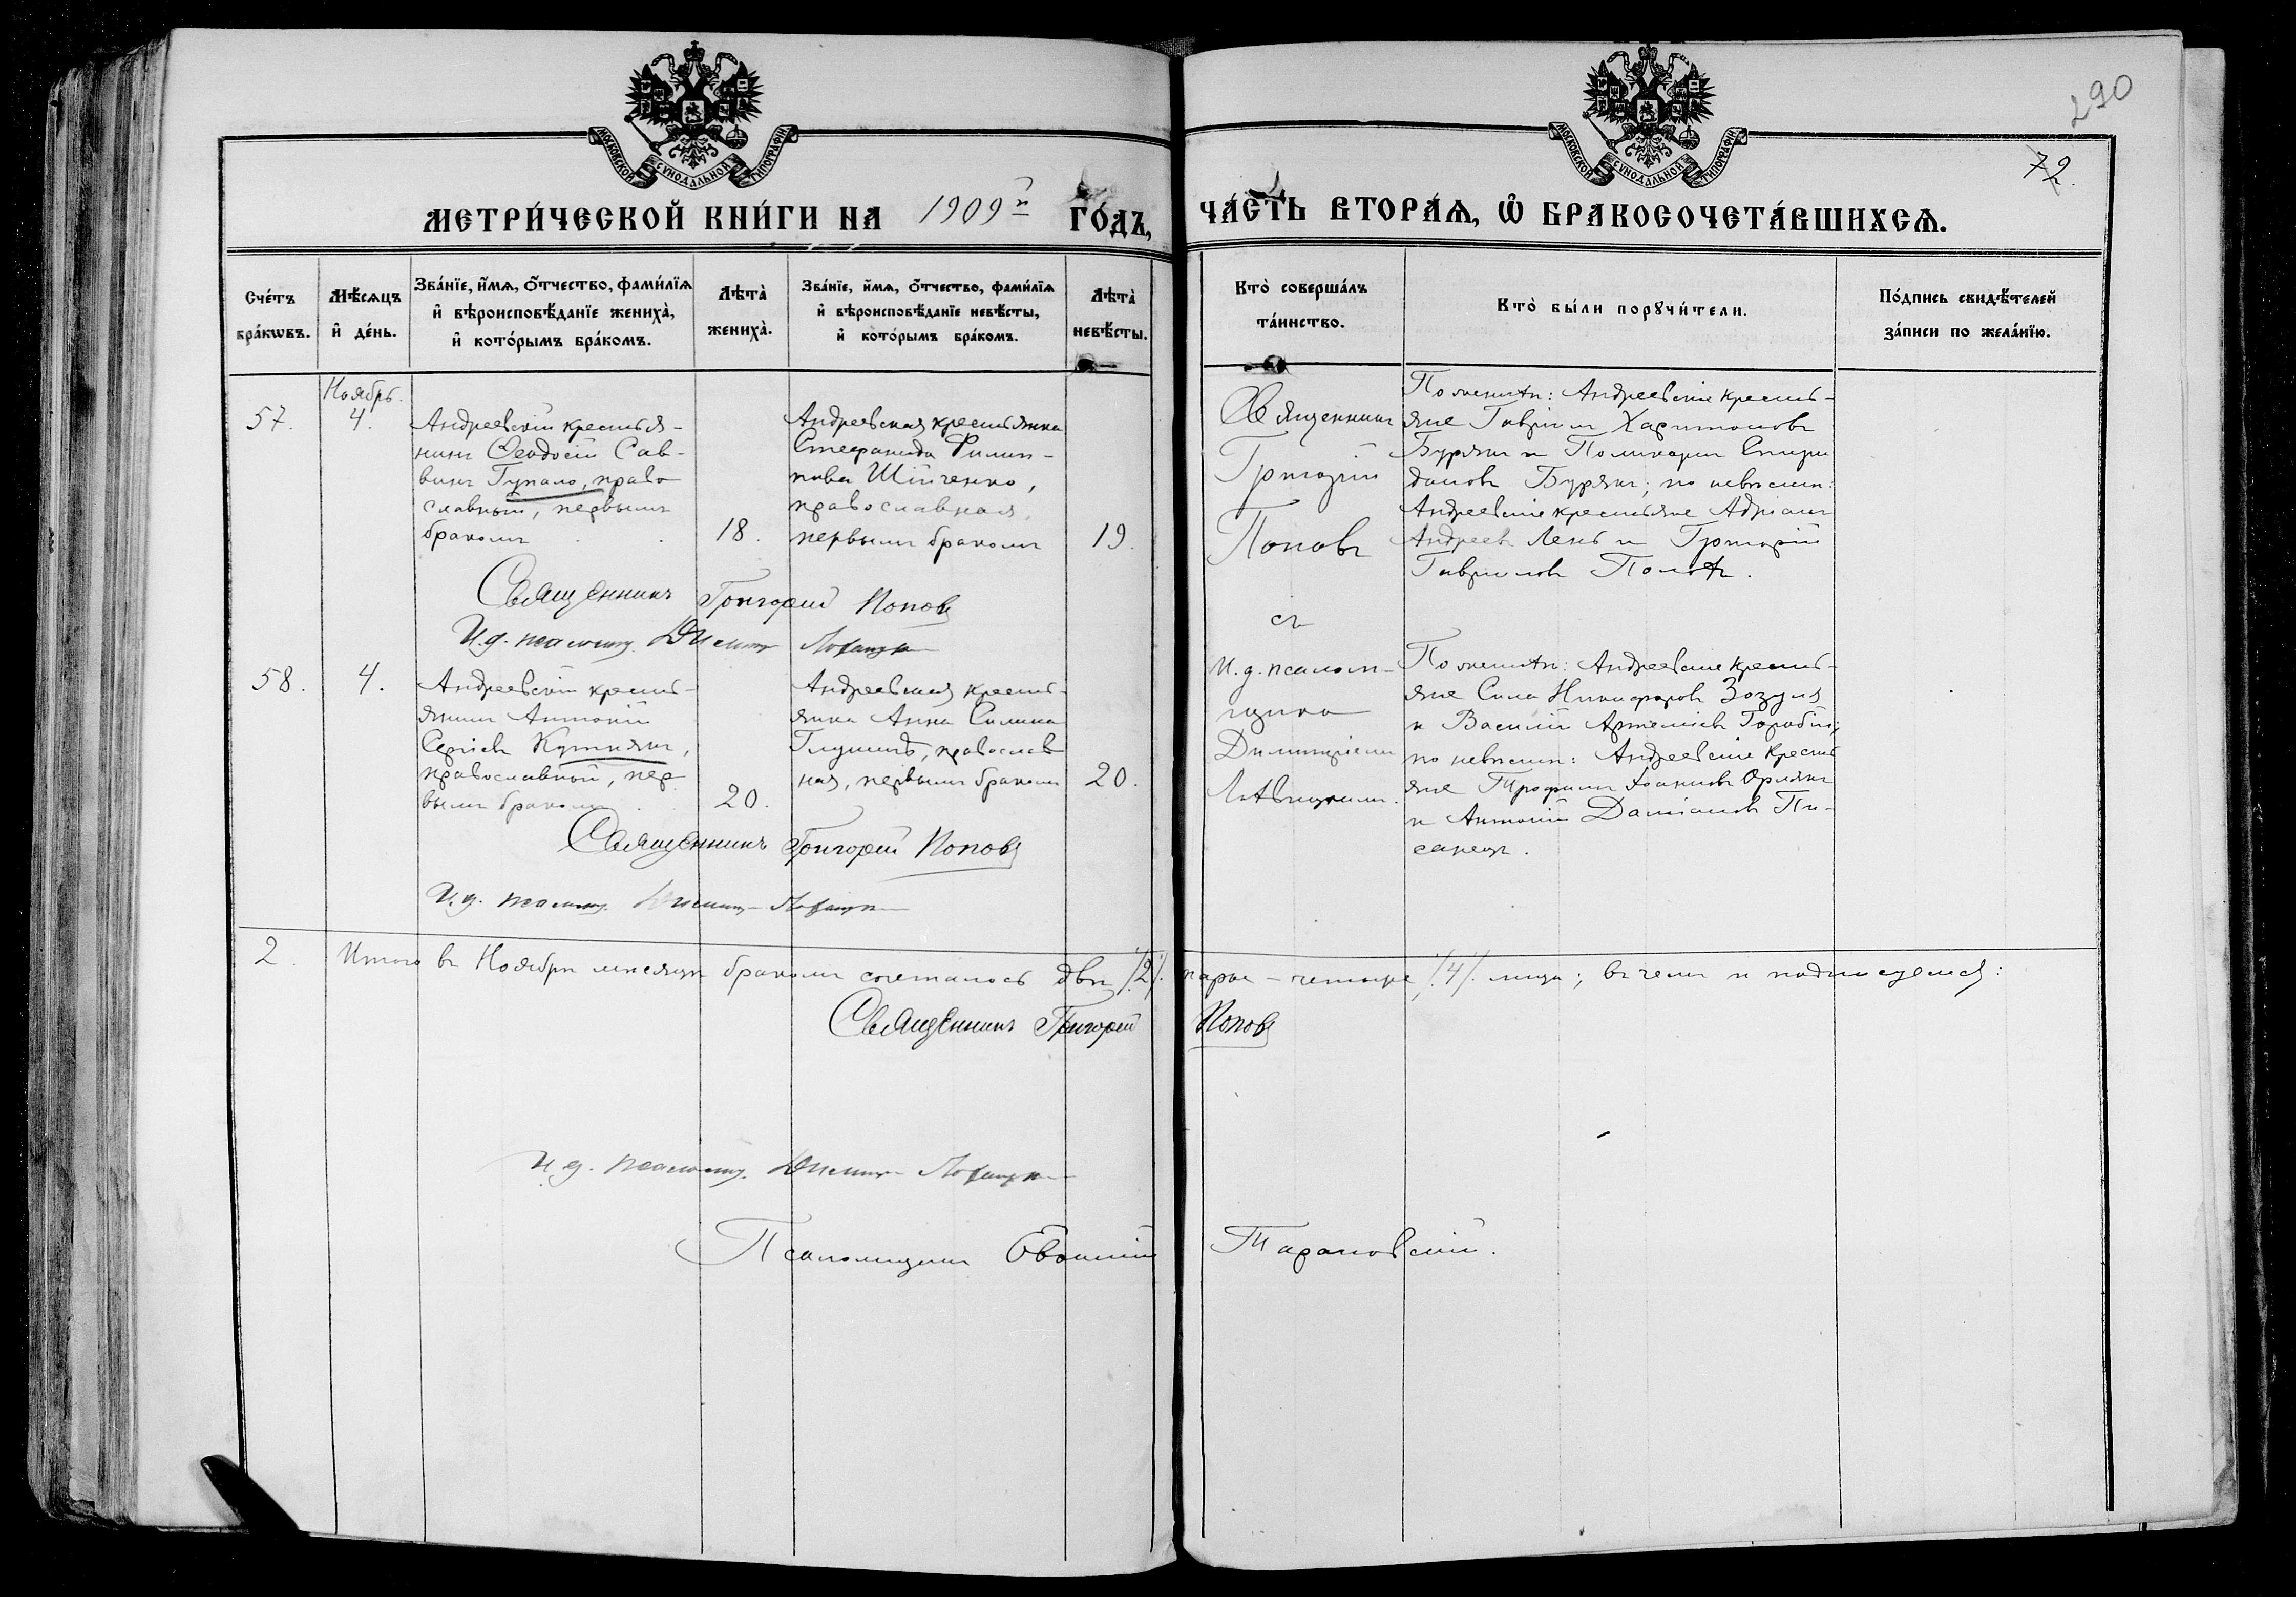 290
72.
МОСКОВСКОЙ СѴНОДАЛЬНОЙ ТИПОГРАФІИ
МОСКОВСКОЙ СѴНОДАЛЬНОЙ ТИПОГРАФІИ
МЕТРИ́ЧЕСКОЙ КНИ́ГИ НА 1909й ГО́ДЪ, ЧА́СТЬ ВТОРА́Ѧ, Ѽ БРАКОСОЧЕТА́ВШИХСѦ.
Сче́тъ бра́кѡвъ.
Мѣ́сѧцъ и҆ де́нь.
Зва́нїе, и҆́мѧ, о҆́тчество, фами́лїѧ и҆ вѣроисповѣ́данїе жениха̀, и҆ кото́рымъ бра́комъ.
Лѣта̀ жениха̀.
Зва́нїе, и҆́мѧ, о҆́тчество, фами́лїѧ и҆ вѣроисповѣ́данїе невѣ́сты, и҆ кото́рымъ бра́комъ.
Лѣта̀ невѣ́сты.
Кто̀ соверша́лъ та́инство.
Кто̀ бы́ли порꙋчи́тели.
По́дпись свидѣ́телей за́писи по жела́нїю.
57.
Ноябрь.
4.
Андреевскій крестья-
нинъ Ѳеодосій Сав-
винъ Гупало, право
славный, первымъ
бракомъ
18.
Андреевская крестьянка
Стефанида Филип-
пова Шійченко,
православная,
первымъ бракомъ
19.
Священникъ
Григорій
Поповъ
съ
И. д. псалом-
щика
Димитріемъ
По женихѣ: Андреевскіе кресть-
яне Гавріилъ Харитоновъ
Бурякъ и Поликарпъ Спири
доновъ Бурякъ; по невѣстѣ:
Андреевскіе крестьяне Адріанъ
Андреевъ Лень и Григорій
Гавриловъ
Священникъ Григорій Поповъ
И. д. псаломщ. Димит.
58.
4.
Андреевскій кресть-
янинъ Антоній
Сергіевъ Кутнякъ,
православный, пер
вымъ бракомъ
20.
Андреевская кресть-
янка Анна Силина
православ
ная, первымъ бракомъ
20.
По женихѣ: Андреевскіе кресть-
яне Сила Никифоровъ Зозуля
и Василій Артеміевъ
по невѣстѣ: Андреевскіе кресть
яне Трофимъ Іоанновъ Орлякъ
и Антоній Даміановъ Пи-
санецъ.
Священникъ Григорій Поповъ
И. д. псаломщ. Димит.
2. Итого въ Ноябрѣ мѣсяцѣ бракомъ сочеталось двѣ /2/. пары – четыре /4/. лица; въ чемъ и подписуемся:
Священникъ Григорій Поповъ
И. д. псаломщ. Димит.
Псаломщикъ Евѳимій Тарановскій.